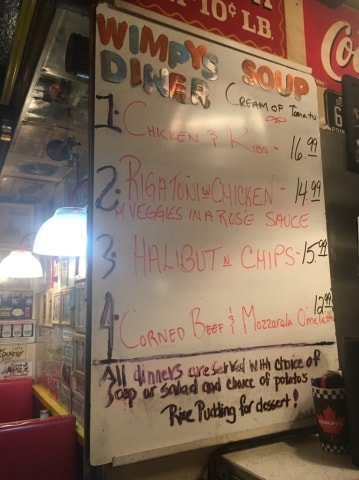 10¢ LB.
Coc
WIMPYS SOUP
DINER CREAM OF Tomato
1. CHICKEN & RIBS - 16.99
2. RIGATONI W CHICKEN - 14.99
W/ VEGGIES IN A ROSE SAUCE
3. HALIBUT N CHIPS - 15.99
12.99
4. CORNED BEEF & Mozzarela Omelette
All dinners are served with choice of
soup or salad and choice of potatos
Rice Pudding for dessert!